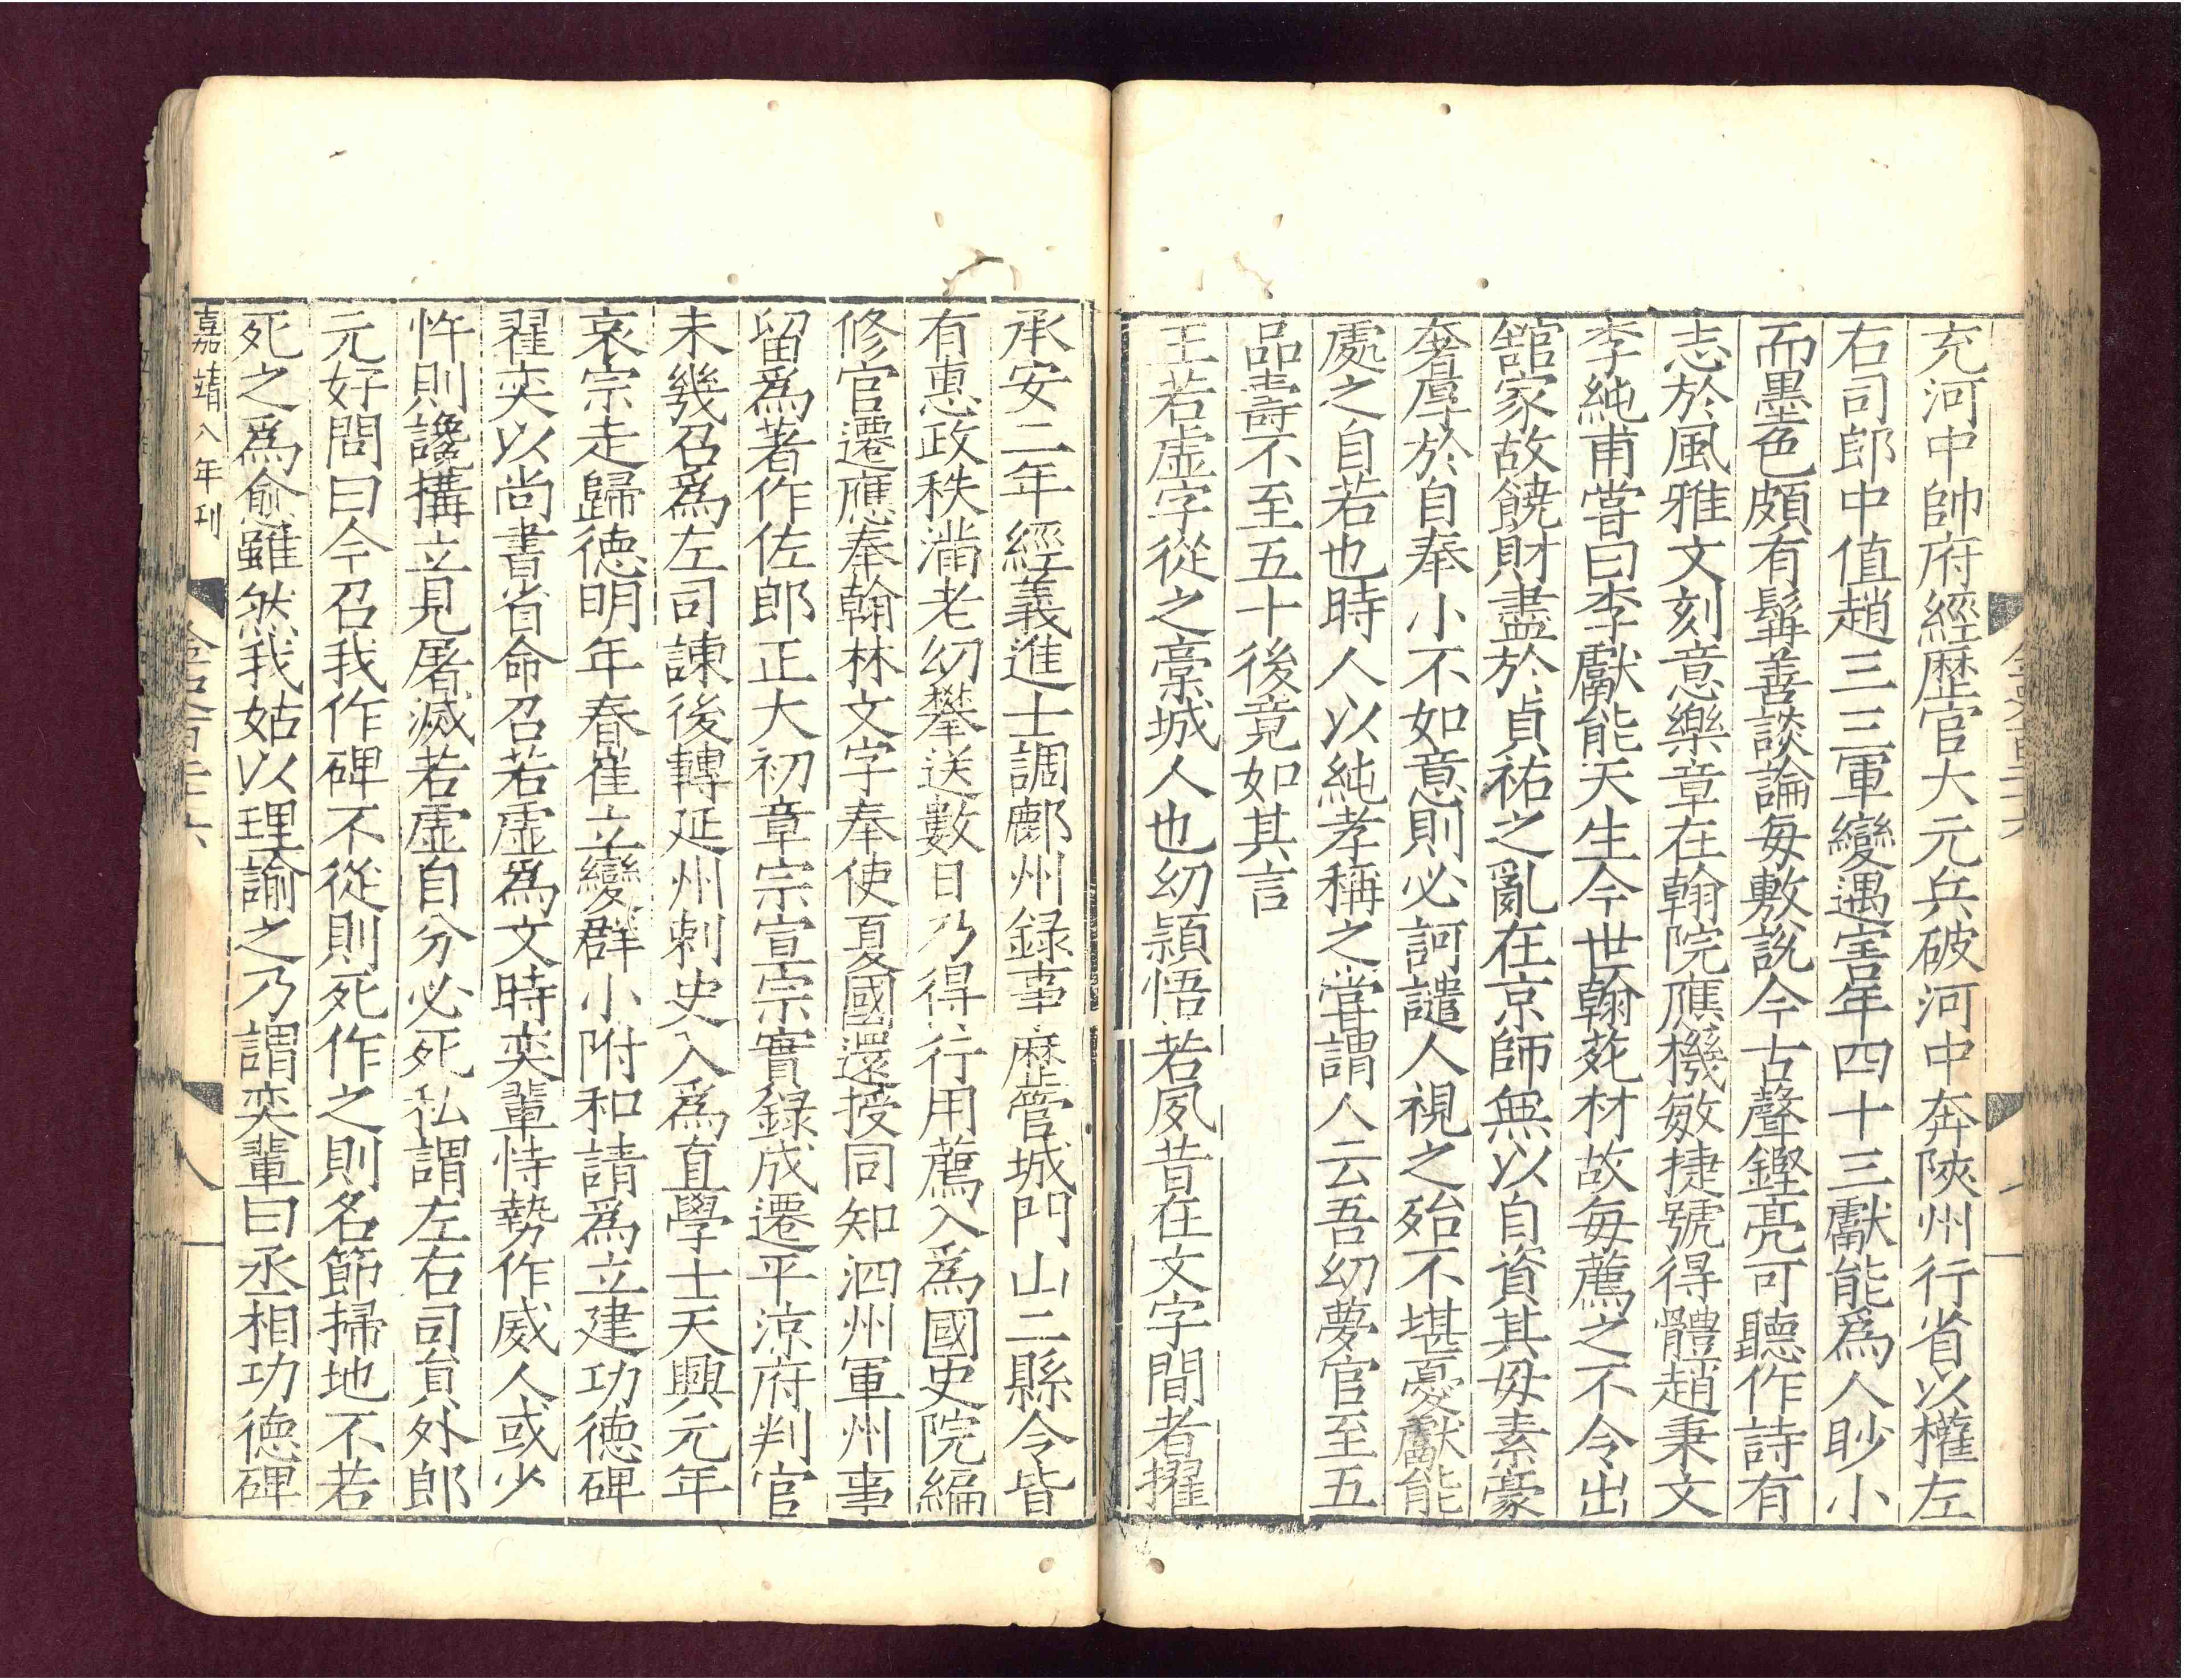 充河中帥府經歷官大元兵破河中奔陝州行省以權左
右司郎中值趙三三軍變遇害年四十三獻能爲人眇小
而墨色頗有髯善談論每敷說今古聲鏗亮可聽作詩有
志於風雅文刻意樂章在翰院應機敏捷號得體趙秉文
李純甫嘗曰李獻能天生今世翰苑材故每薦之不令出
舘家故饒財盡於貞祐之亂在京師無以自資其母素豪
奢厚於自奉小不如意則必訶譴人視之殆不堪憂獻能
處之自若也時人以純孝稱之嘗謂人云吾幼夢官至五
品壽不至五十後竟如其言
王若虛字從之藁城人也幼頴悟若夙昔在文字間者擢
承安二年經義進士調鄜州録事歷管城門山二縣令皆
有惠政秩滿老幼攀送數日乃得行用薦入爲國史院編
修官遷應奉翰林文字奉使夏國還授同知泗州軍州事
留爲著作佐郎正大初章宗宣宗實録成遷平涼府判官
未幾召爲左司諫後轉延州刺史入爲直學士天興元年
哀宗走歸德明年春崔立變群小附和請爲立建功德碑
翟奕以尚書省命召若虛爲文時奕輩恃勢作威人或少
忤則讒搆立見屠滅若虛自分必死私謂左右司員外郎
元好問曰今召我作碑不從則死作之則名節掃地不若
死之爲愈雖然我姑以理諭之乃謂奕輩曰丞相功德碑
嘉靖八年刊
八